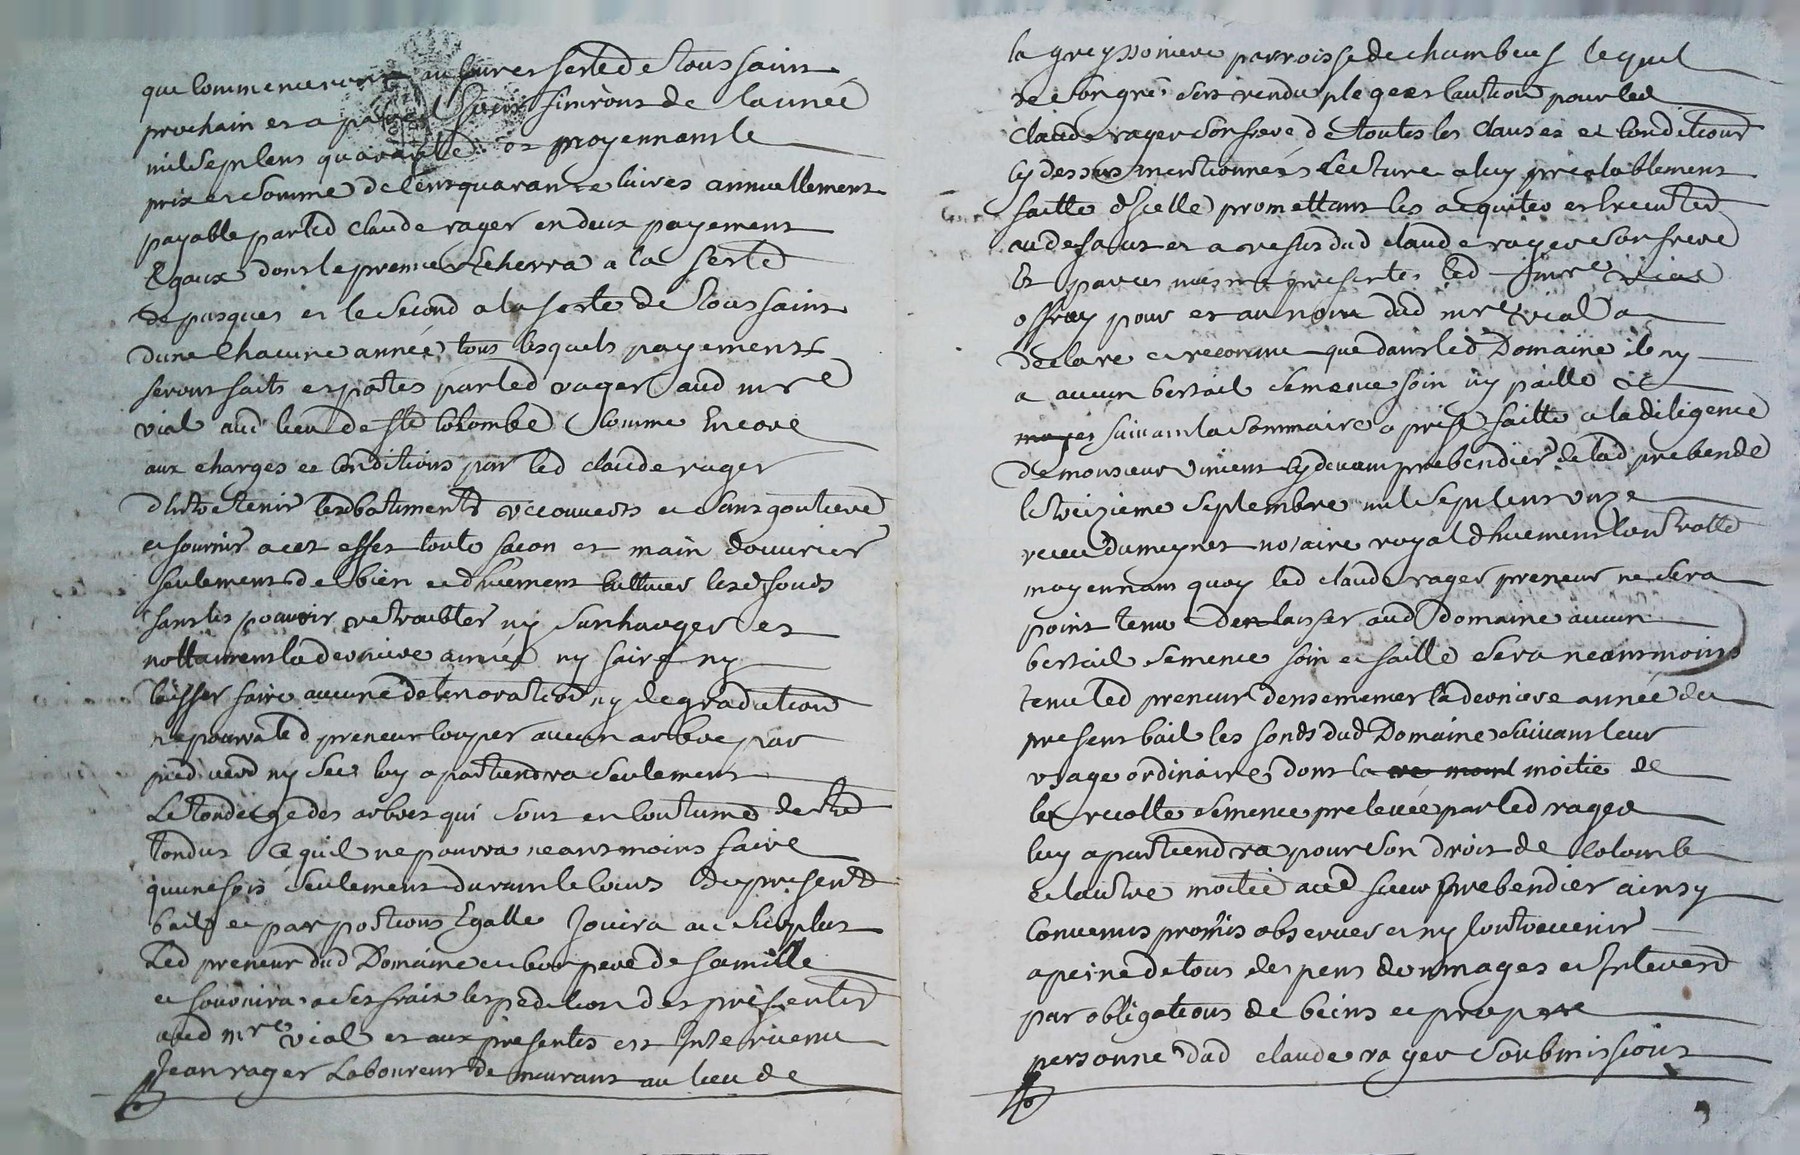 que commenceront au jour et feste de toussaint
prochain et a pareil jour finiront de lannée
mil sept cens quarante et moyennant le
prix et somme de cent quarante livres annuellement
payable par led claude rager en deux payement
Egaux dont le premier Eherra a la feste
de pasques et le second a la feste de toussaint
dune chacune année tous lesquels payements
seront faits et portés par led rager aud mre
vial aud lieu de ste colombe comme Encore
aux charges et conditions par led claude rager
dentretenir lesd batiments recouverts et sans goutiere
et fournir a cet effet toute facon et main douvrier
seulement de bien et dhuement cultiver lesd fonds
sans les pouvoir retroubler ny surcharger et
nottament la derniere année ny faire ny
laisser faire aucune deterioration ny degradation
ne pourra led preneur couper aucun arbre par
pied verd ny sec luy apartiendra seulement
Le tondage des arbres qui sont en coutume destre
tondus ce quil ne pourra neantmoins faire
quune fois seulement durant le cours du present
bail et par portions Egalle jouira au surplus
Led preneur dud Domaine en bon pere de famille
et fournira a ses fraix lexpedition des presentes
aud mre vial et aux presentes est Intervenu
Jean rager Laboureur demeurant au lieu de
la greyssoniere parroisse de chambeuf lequel
de son gré sest rendu plege et caution pour led
Claude rager son frere de toutes les clauses et conditions
cy dessus mentionnées lecture a luy prealablement
faitte dicelle promettant les acquiter et
au defaut et a refus dud claude rager son frere
Et par ces mesme presentes led mre vial
offray pour et au nom dud mre vial a
declaré et reconnu que dans led Domaine il ny
a aucun bestail semence foin ny paille
suivant la sommaire a prise faitte a la diligence
de monsieur viment cy devant prebendier de lad prebende
le treizieme septembre mil sept cens onze
receu dumeynet notaire royal dhuement controlle
moyennant quoy led claude rager preneur ne sera
point tenu den laisser aud Domaine aucun
bestail semence foin et paille sera neantmoins
tenu led preneur densemencer la derniere année du
present bail les fonds dud Domaine suivant leur
usage ordinaire dont la moitié de
la recolte semence prelevée par led rager
luy apartiendra pour son droit de colonb
et lautre moitié aud sieur prebendier ainsy
Convenus promis observer et ny contrevenir
a peine de tous despens dommages et Interest
par obligations de biens et propre
personne dud claude rager soubmissions